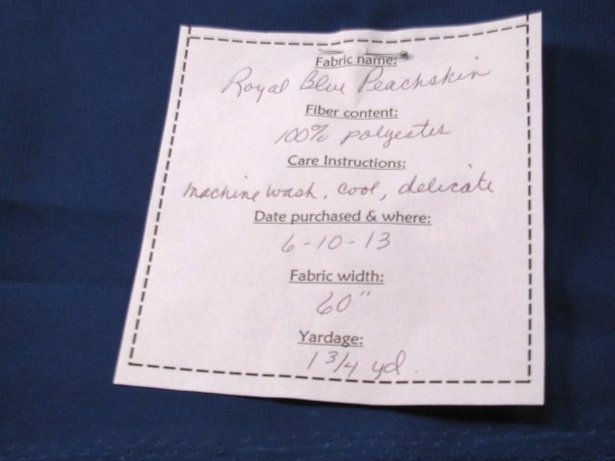 Fabric name:
Royal Blue Peachskin
Fiber content:
100% polyester
Care Instructions:
machine wash, cool, delicate
Date purchased & where:
6-10-13
Fabric width:
60"
Yardage:
1 3/4 yd.